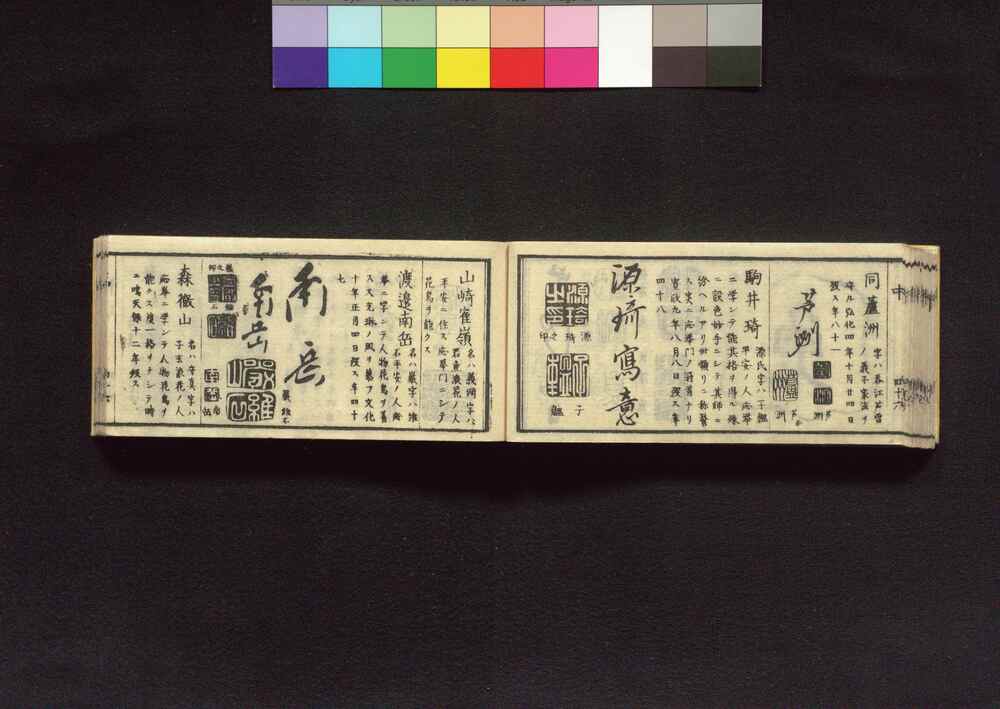 中
四十六
同蘆洲 字ハ春江芦雪
ノ義子家法ヲ
守ル弘化四年十月廿四日
歿ス年八十一
芦洲
駒井琦 源氏字ハ子韞
平安ノ人応挙
ニ学ンテ能其格ヲ得ル殊
ニ設色妙手ニシテ其師ニ
人実ニ応挙門ノ
寛政九年八月八日歿ス年
四十八
源琦寫意
源琦之印
子韞
山崎隺嶺 名ハ義
平安ニ住ス応挙門ニシテ
花鳥ヲ能クス
渡邉南岳 名ハ巌字ハ維
石平安ノ人応
挙ニ学ンテ人物花鳥ヲ善
ス又光琳ノ風ヲ慕フ文化
十年正月四日歿ス年四十
七
南岳
巌維石
南岳
森徹山 名ハ守真字ハ
子玄浪花ノ人
応挙ニ学ンテ人物花鳥ヲ
能クス復一格ヲナシテ時
ニ鳴天保十二年歿ス